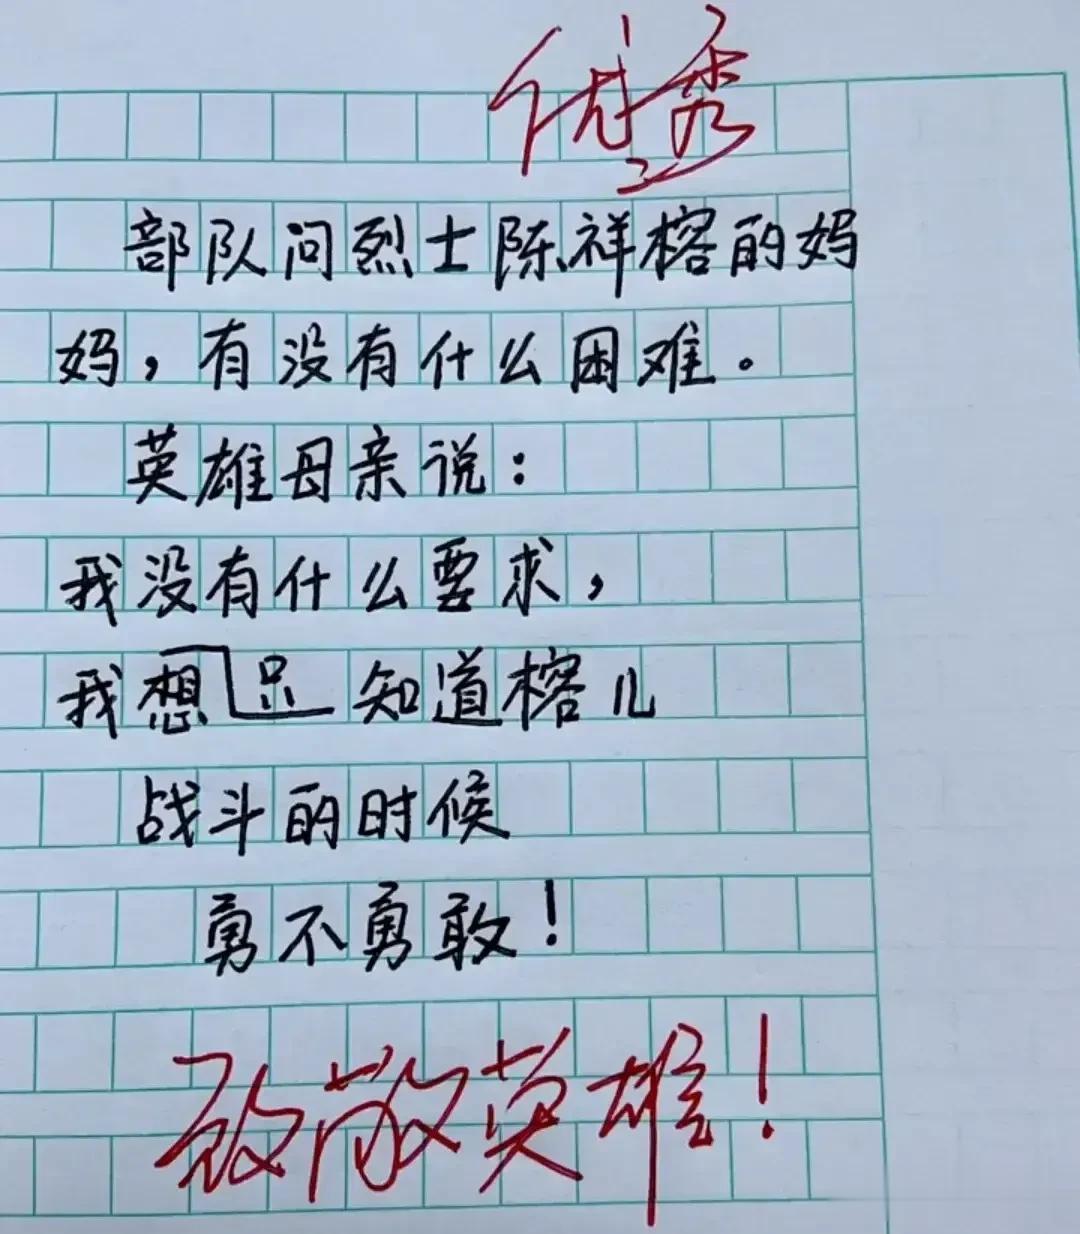 优秀
部队问烈士陈祥榕的妈
妈，有没有什么困难。
英雄母亲说：
我没有什么要求，
我想只知道榕儿
战斗的时候
勇不勇敢！
致敬英雄！